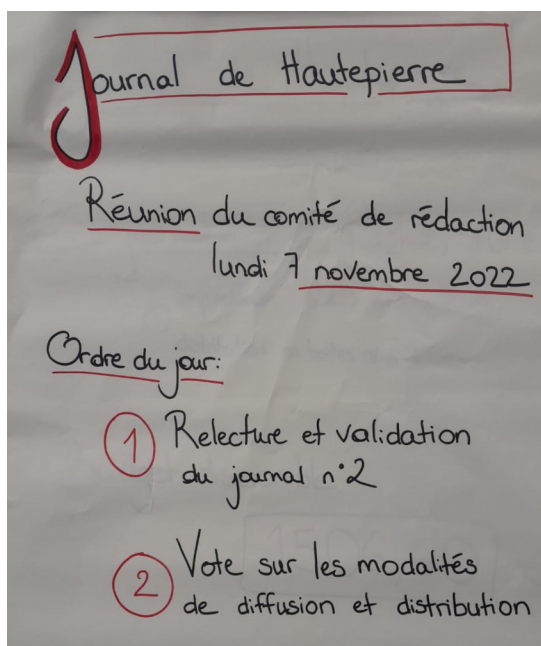 Journal de Hautepierre
Réunion du comité de rédaction
lundi 7 novembre 2022
Ordre du jour:
1 Relecture et validation
du journal n°2
2 Vote sur les modalités
de diffusion et distribution